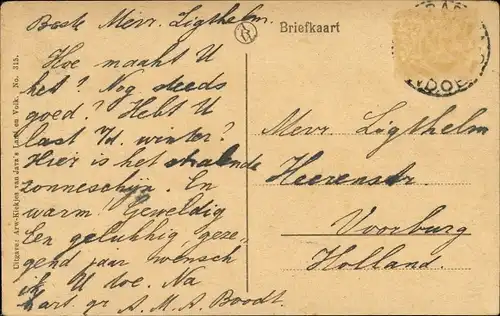 Beste Mevr. Ligthelm.
Hoe maakt U
het? Nog steeds
goed? Hebt U
last v/d. winter?
Hier is het stralende
zonneschijn. En
warm! Geweldig
Een gelukkig geze-
gend jaar wensch
ik U toe. Na
hart. gr. A. M. A. Boodt.
Briefkaart
Mevr. Ligthelm
Heerenstr.
Voorburg
Holland.
Uitgave: Arw-Kiekjes van Java's Land en Volk. No. 313.